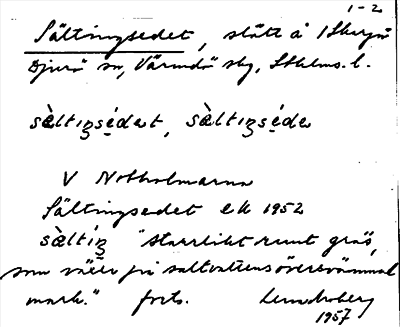 1-2
Sältingsedet, slått å 1 Skarp
Djurö sn, Värmdö sbg, Sthlms. l.
sæ̀ltiŋsédet, sæ̀ltiŋséde
V Notholmarna
Sältingsedet ek 1952
sæ̀ltíŋ "starrlikt runt gräs,
som växer på saltvattensöversvämmad
mark." forts. Lundberg
1957